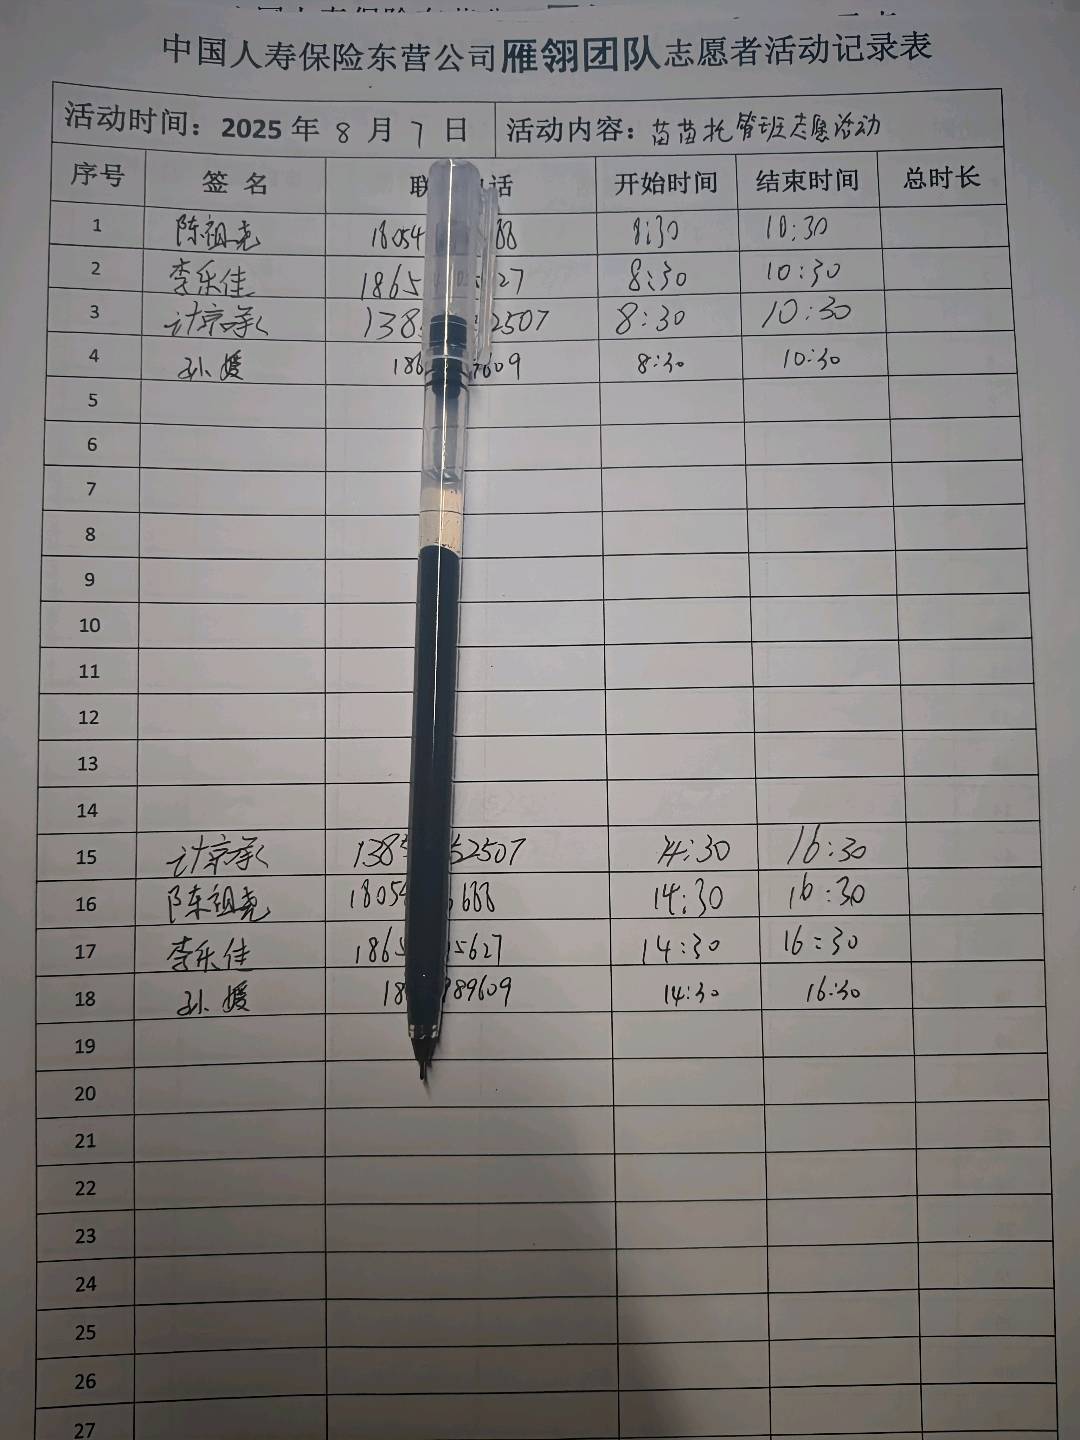 中国人寿保险东营公司雁翎团队志愿者活动记录表
活动时间：2025 年 8 月 7 日 活动内容：苗苗托管班志愿活动
序号 签 名 联 话 开始时间 结束时间 总时长
1 陈祖尧 18054 88 8:30 10:30
2 李乐佳 1865 27 8:30 10:30
3 138 2507 8:30 10:30
4 孙媛 186 609 8:30 10:30
5
6
7
8
9
10
11
12
13
14
15 138 2507 14:30 16:30
16 陈祖尧 18054 688 14:30 16:30
17 李乐佳 1865 5627 14:30 16:30
18 孙媛 18 89609 14:30 16:30
19
20
21
22
23
24
25
26
27